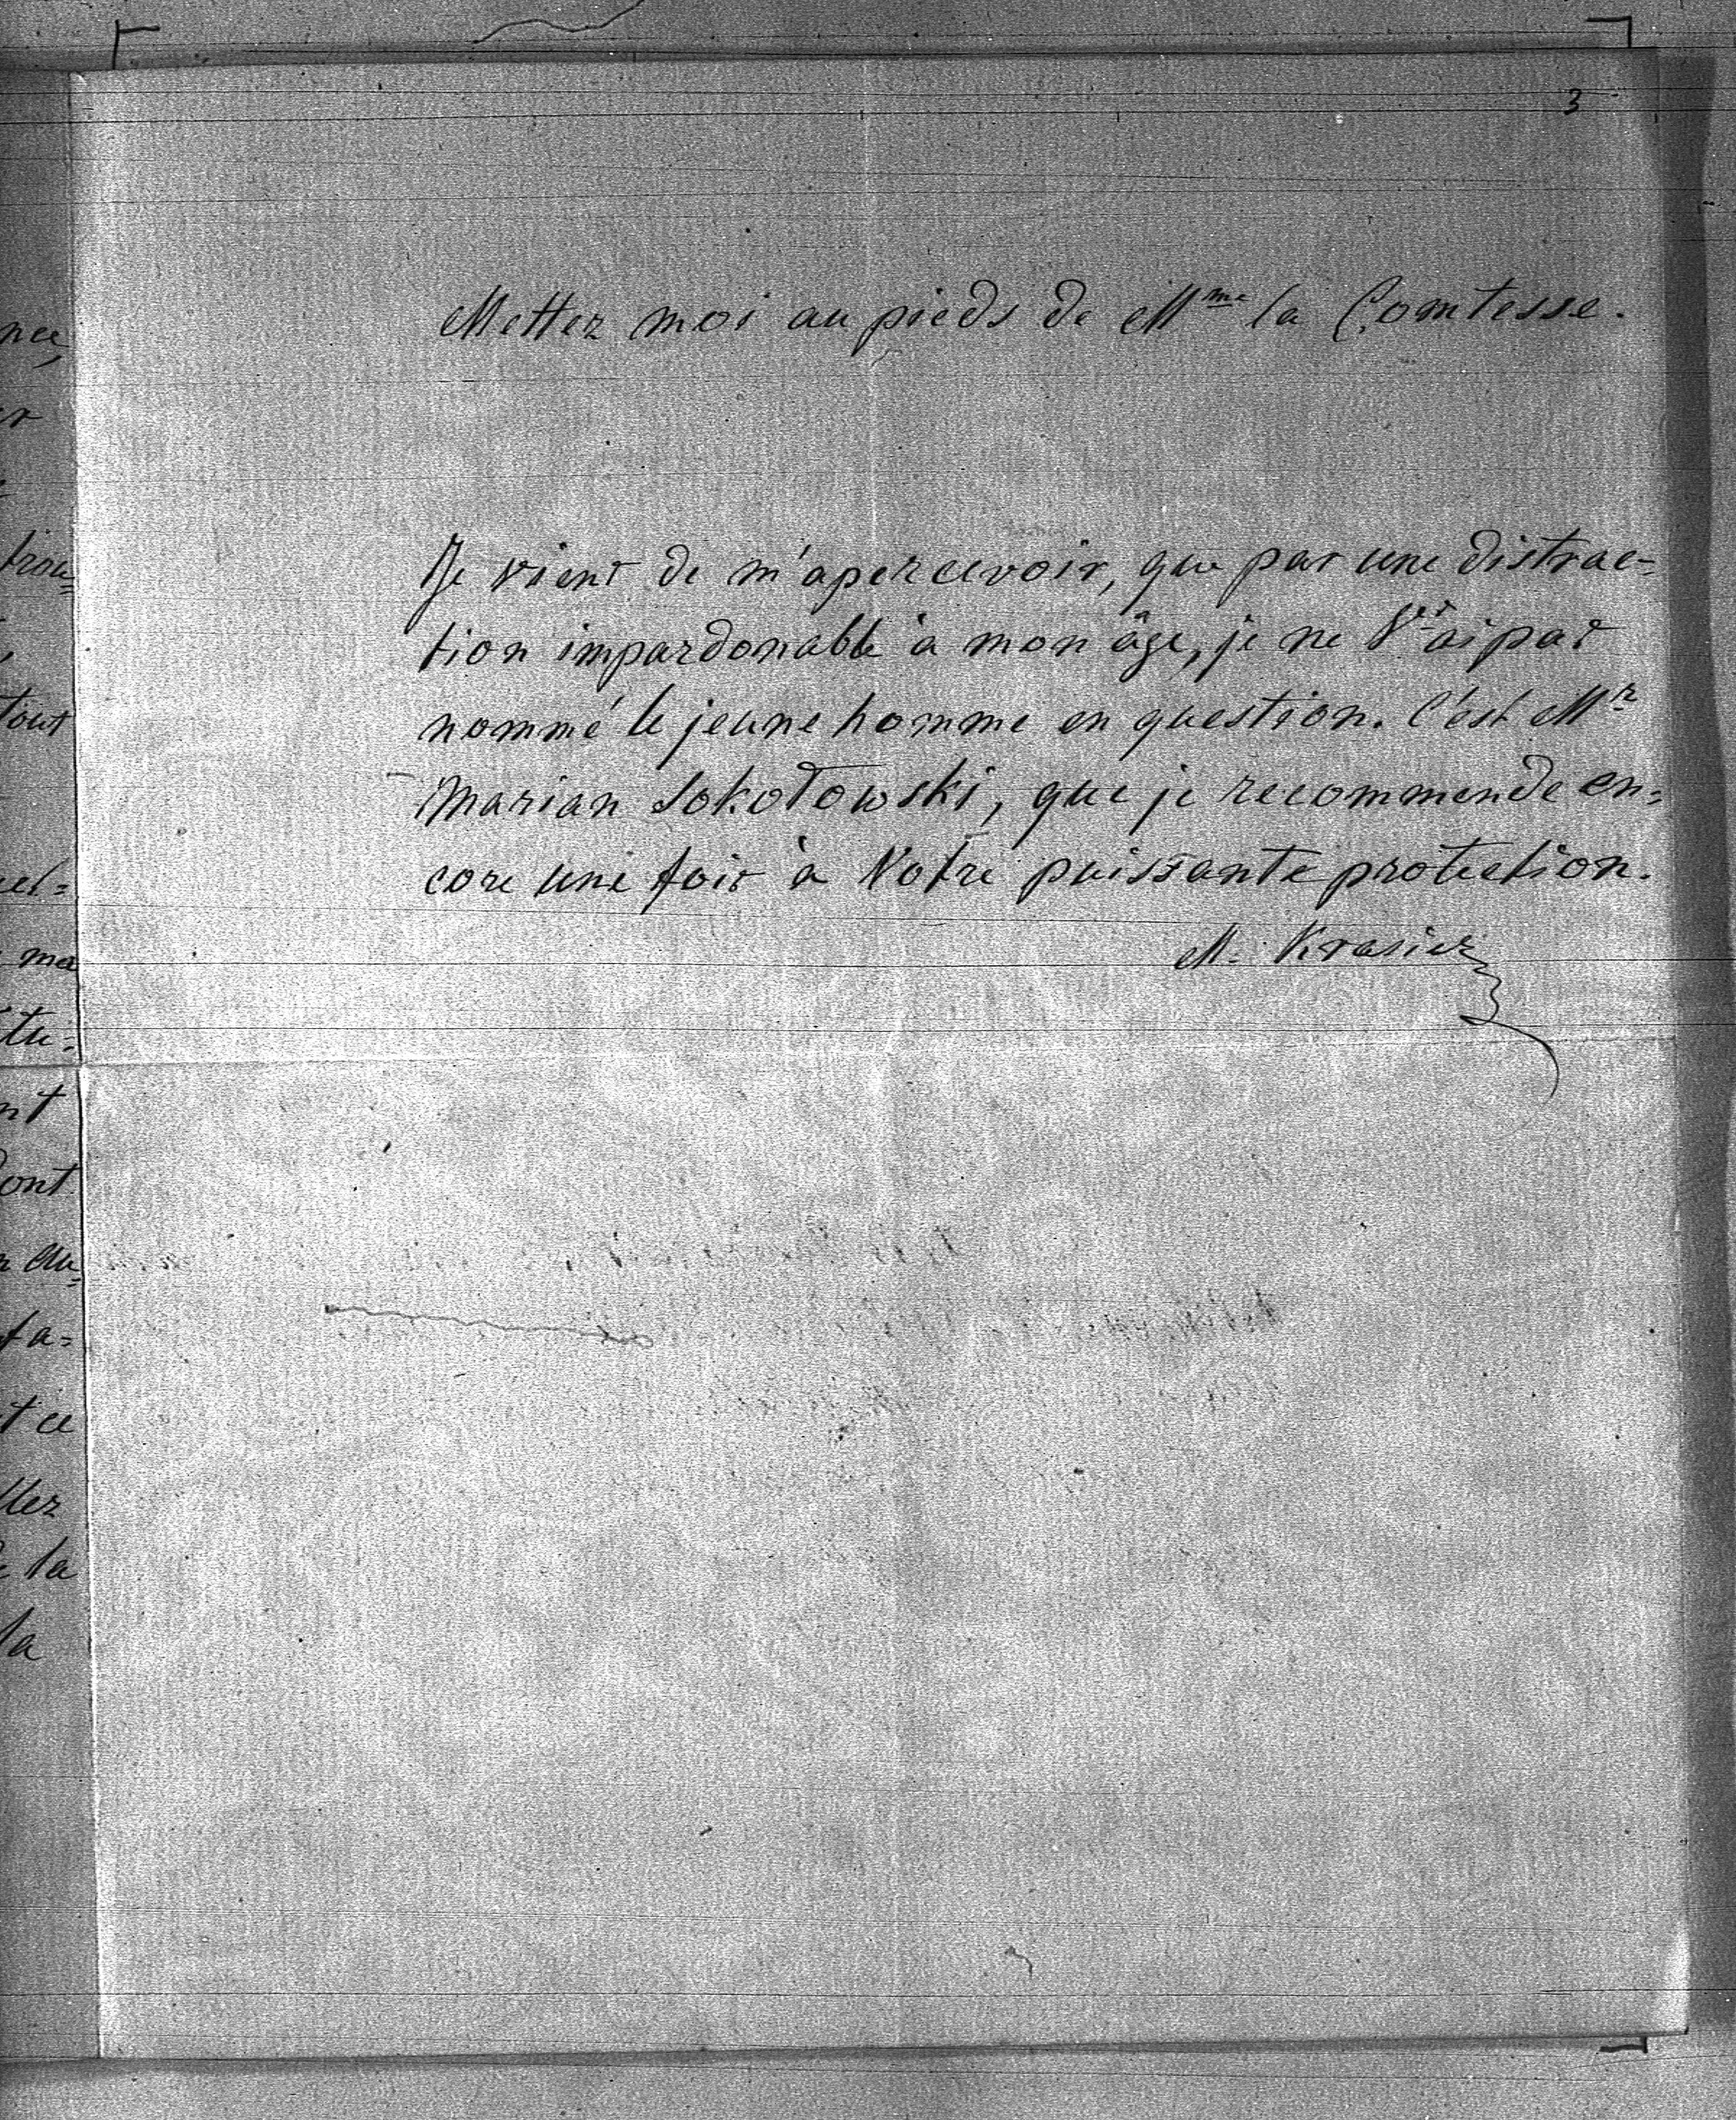 3
Mettez moi au pieds de Mme la Comtesse.
Je viens de m'apercevoir, que par une distrac-
tion impardonable à mon âge, je ne Vs ai pas
nommé le jeune homme en question. C'est Mr
Marian Sokołowski, que je recommende en=
core une fois à Votre puissante protection.
M. Krasicz
nce,
er
trou=
tout
ma
tu=
nt
dont
fa=
t ce
llez
la
la